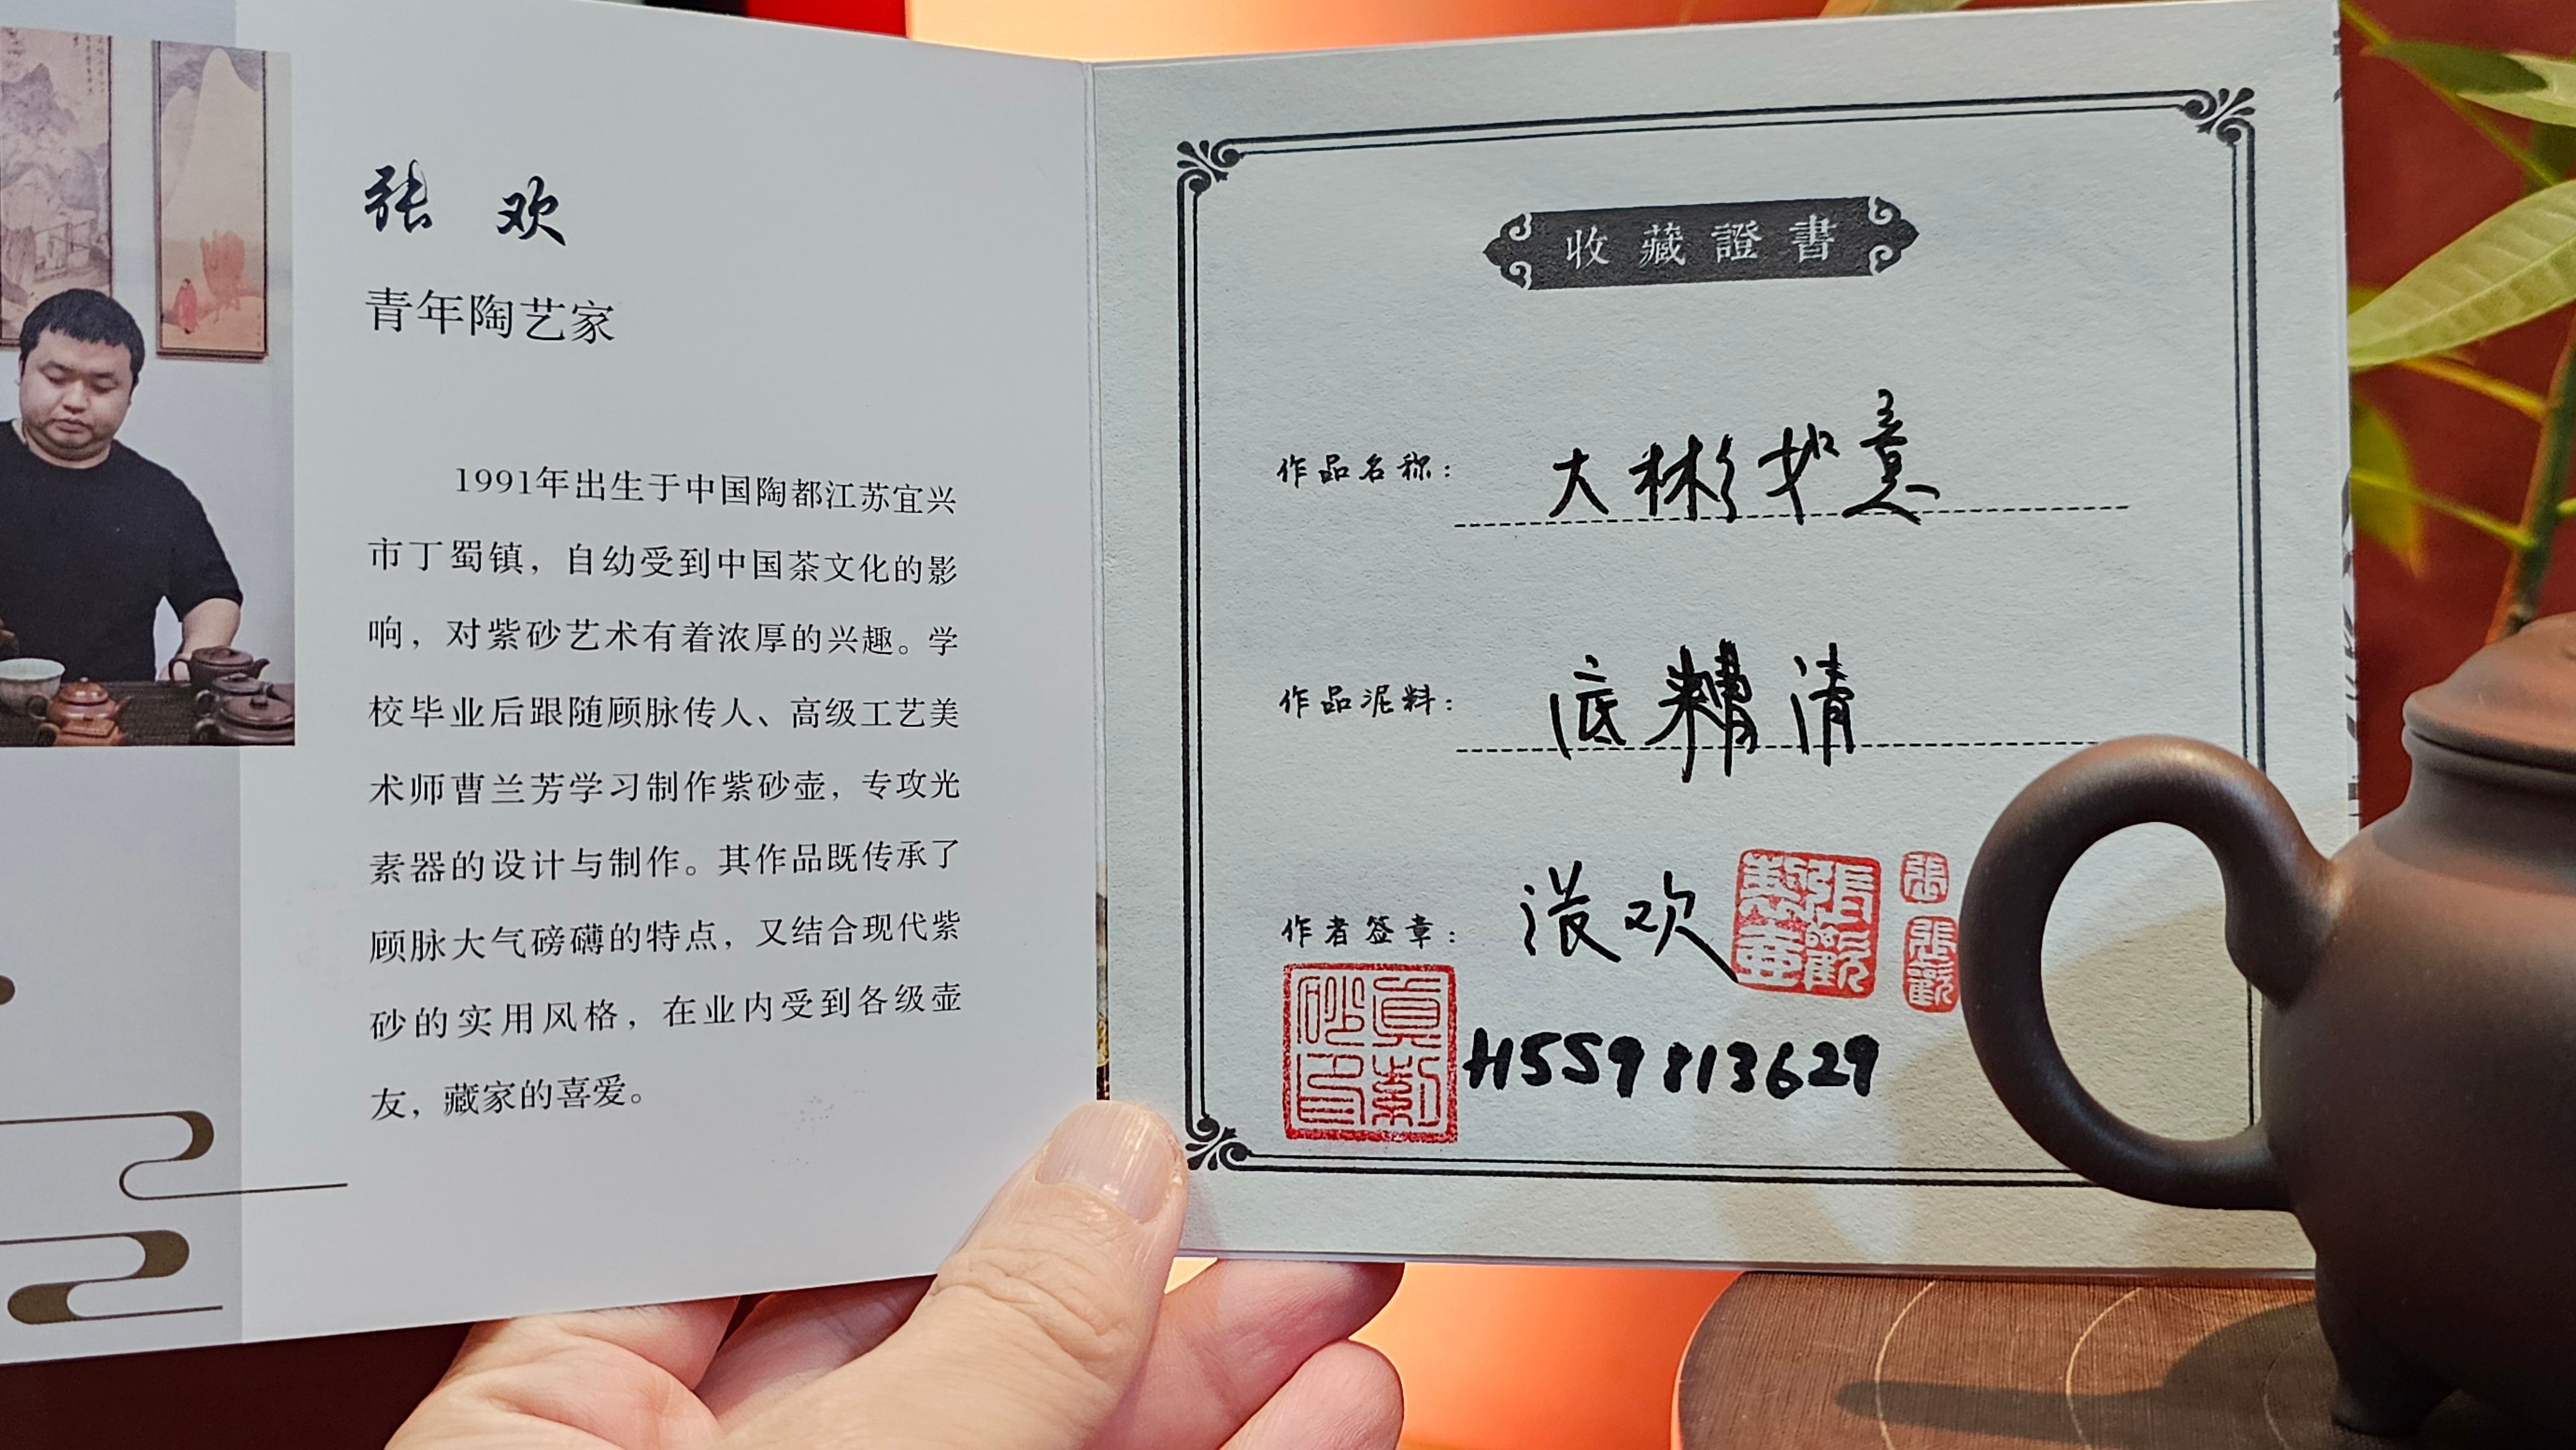 张 欢
青年陶艺家
1991年出生于中国陶都江苏宜兴
市丁蜀镇，自幼受到中国茶文化的影
响，对紫砂艺术有着浓厚的兴趣。学
校毕业后跟随顾脉传人、高级工艺美
术师曹兰芳学习制作紫砂壶，专攻光
素器的设计与制作。其作品既传承了
顾脉大气磅礴的特点，又结合现代紫
砂的实用风格，在业内受到各级壶
友，藏家的喜爱。
收藏證書
作品名称：大彬如意
作品泥料：底糟清
作者签章：张欢
張
張歡
H559813629